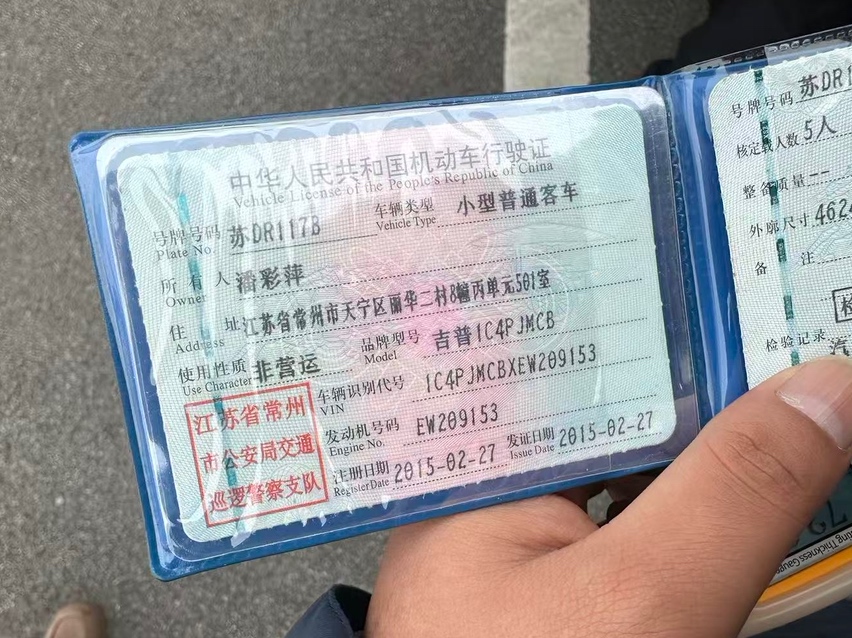 中华人民共和国机动车行驶证
Vehicle License of the People's Republic of China
号牌号码 苏DR117B 车辆类型 小型普通客车
Plate No. Vehicle Type
所有人 潘彩萍
Owner
住址 江苏省常州市天宁区丽华二村8幢丙单元501室
Address
使用性质 非营运 品牌型号 吉普1C4PJMCB
Use Character Model
江苏省常州
市公安局交通
巡逻警察支队
车辆识别代号 1C4PJMCBXEW209153
VIN
发动机号码 EW209153
Engine No.
注册日期 2015-02-27 发证日期 2015-02-27
Register Date Issue Date
号牌号码 苏DR1
核定载人数 5人
整备质量 --
外廓尺寸 4624
备注
检验记录
汽